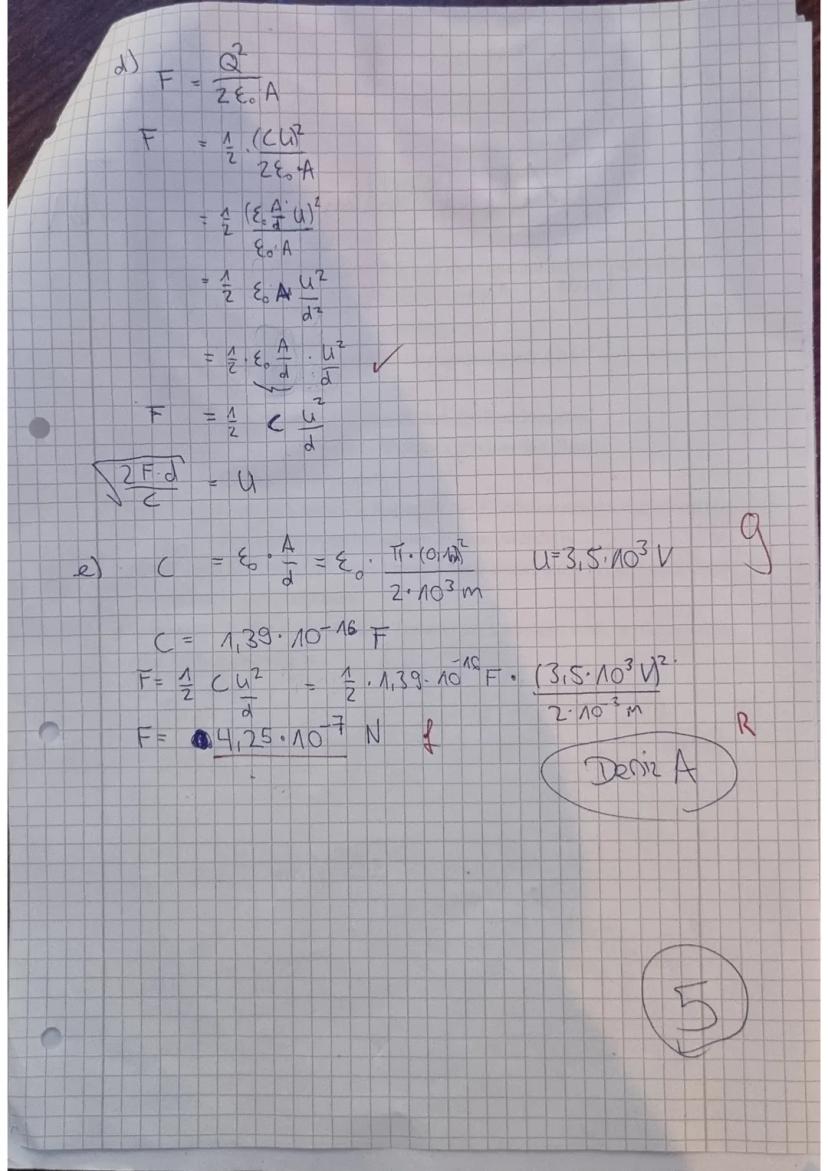 d) F = Q²/(2ε₀A)
F = 1/2 · (CU)²/(2ε₀·A)
= 1/2 (ε₀ A/d · U)²/(ε₀·A)
= 1/2 ε₀ A U²/d²
= 1/2 · ε₀ A/d · U²/d ✓
F = 1/2 C U²/d
√(2F·d/C) = U
e) C = ε₀ · A/d = ε₀ · π·(0,1m)²/(2·10³ m) U=3,5·10³ V
g
C = 1,39·10⁻¹⁶ F
F = 1/2 C U²/d = 1/2 · 1,39·10⁻¹⁶ F · (3,5·10³ V)²/(2·10⁻³ m)
F = 4,25·10⁻⁷ N f
R
Deniz A
5